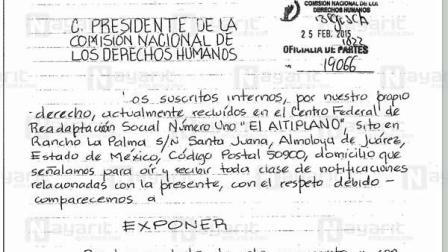 COMISIÓN NACIONAL DE LOS
DERECHOS HUMANOS
25 FEB. 2015
OFICIALIA DE PARTES
19066
C. PRESIDENTE DE LA
COMISIÓN NACIONAL DE
LOS DERECHOS HUMANOS
Los suscritos internos, por nuestro propio
derecho, actualmente recluidos en el Centro Federal de
Readaptación Social Número Uno "EL ALTIPLANO", sito en
Rancho La Palma S/N Santa Juana, Almoloya de Juárez,
Estado de México, Código Postal 50900, domicilio que
señalamos para oír y recibir toda clase de notificaciones
relacionadas con la presente, con el respeto debido -
comparecemos a
EXPONER
Nayarit